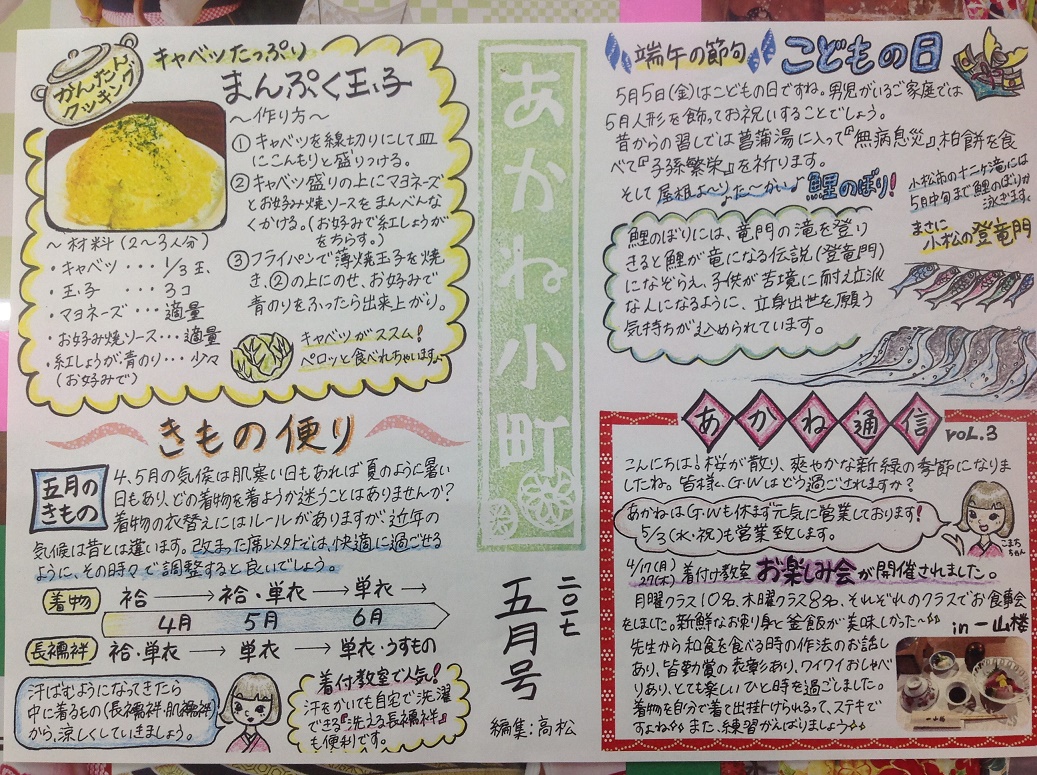 かんたん、
クッキング
キャベツたっぷり
まんぷく玉子
～作り方～
①キャベツを線切りにして皿
にこんもりと盛りつける。
②キャベツ盛りの上にマヨネーズ
とお好み焼ソースをまんべんな
くかける。(お好みで紅しょうが
をちらす。)
③フライパンで薄焼玉子を焼
き、②の上にのせ、お好みで
青のりをふったら出来上がり。
～材料(2～3人分)
・キャベツ・・・1/3玉
・玉子・・・3コ
・マヨネーズ・・・適量
・お好み焼ソース・・・適量
・紅しょうが、青のり・・・少々
(お好みで)
キャベツがススム!
ペロッと食べれちゃいます
きもの便り
五月の
きもの
4、5月の気候は肌寒い日もあれば夏のように暑い
日もあり、どの着物を着ようか迷うことはありませんか?
着物の衣替えにはルールがありますが近年の
気候は昔とは違います。改まった席以外では、快適に過ごせる
ように、その時々で調整すると良いでしょう。
着物 袷→袷・単衣→単衣→
4月 5月 6月
長襦袢 袷・単衣→単衣→単衣・うすもの
汗ばむようになってきたら
中に着るもの(長襦袢・肌襦袢)
から、涼しくしていきましょう。
着付教室で人気!
汗をかいても自宅で洗濯
できる『洗える長襦袢』
も便利です。
あかね小町
二〇一七
五月号
編集:高松
端午の節句
こどもの日
5月5日(金)はこどもの日ですね。男児がいるご家庭では
5月人形を飾ってお祝いすることでしょう。
昔からの習しでは菖蒲湯に入って『無病息災』柏餅を食
べて『子孫繁栄』を祈ります。
そして屋根よ～りた～か～い♪鯉のぼり!
小松市の十二ヶ滝には
5月中旬まで鯉のぼりが
泳ぎます
まさに
小松の登竜門
鯉のぼりには、竜門の滝を登り
きると鯉が竜になる伝説(登竜門)
になぞらえ、子供が苦境に耐え立派
な人になるように、立身出世を願う
気持ちが込められています。
あかね通信 VOL.3
こんにちは!桜が散り、爽やかな新緑の季節になりま
したね。皆様、G.Wはどう過ごされますか?
あかねはG.Wも休まず元気に営業しております!
5/3(水・祝)も営業致します。
こまち
ちゃん
4/17(月)
27(木)
着付け教室お楽しみ会が開催されました。
月曜クラス10名、木曜クラス8名、それぞれのクラスでお食事会
をしました。新鮮なお刺身と釜飯が美味しかった～
in 一山楼
先生から和食を食べる時の作法のお話し
あり、皆勤賞の表彰あり、ワイワイおしゃべ
りあり、とても楽しいひと時を過ごしました。
着物を自分で着て出掛けられるって、ステキで
すよね また、練習がんばりましょう